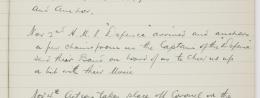 and Anchor.
Nov 2nd H.M.S "Defence" arrived and anchors
a few chains from us the Captain of the Defence
sent their Band on board of us to cheer us up
a bit with their Music
Nov 4th Action taken place off Coronel on the